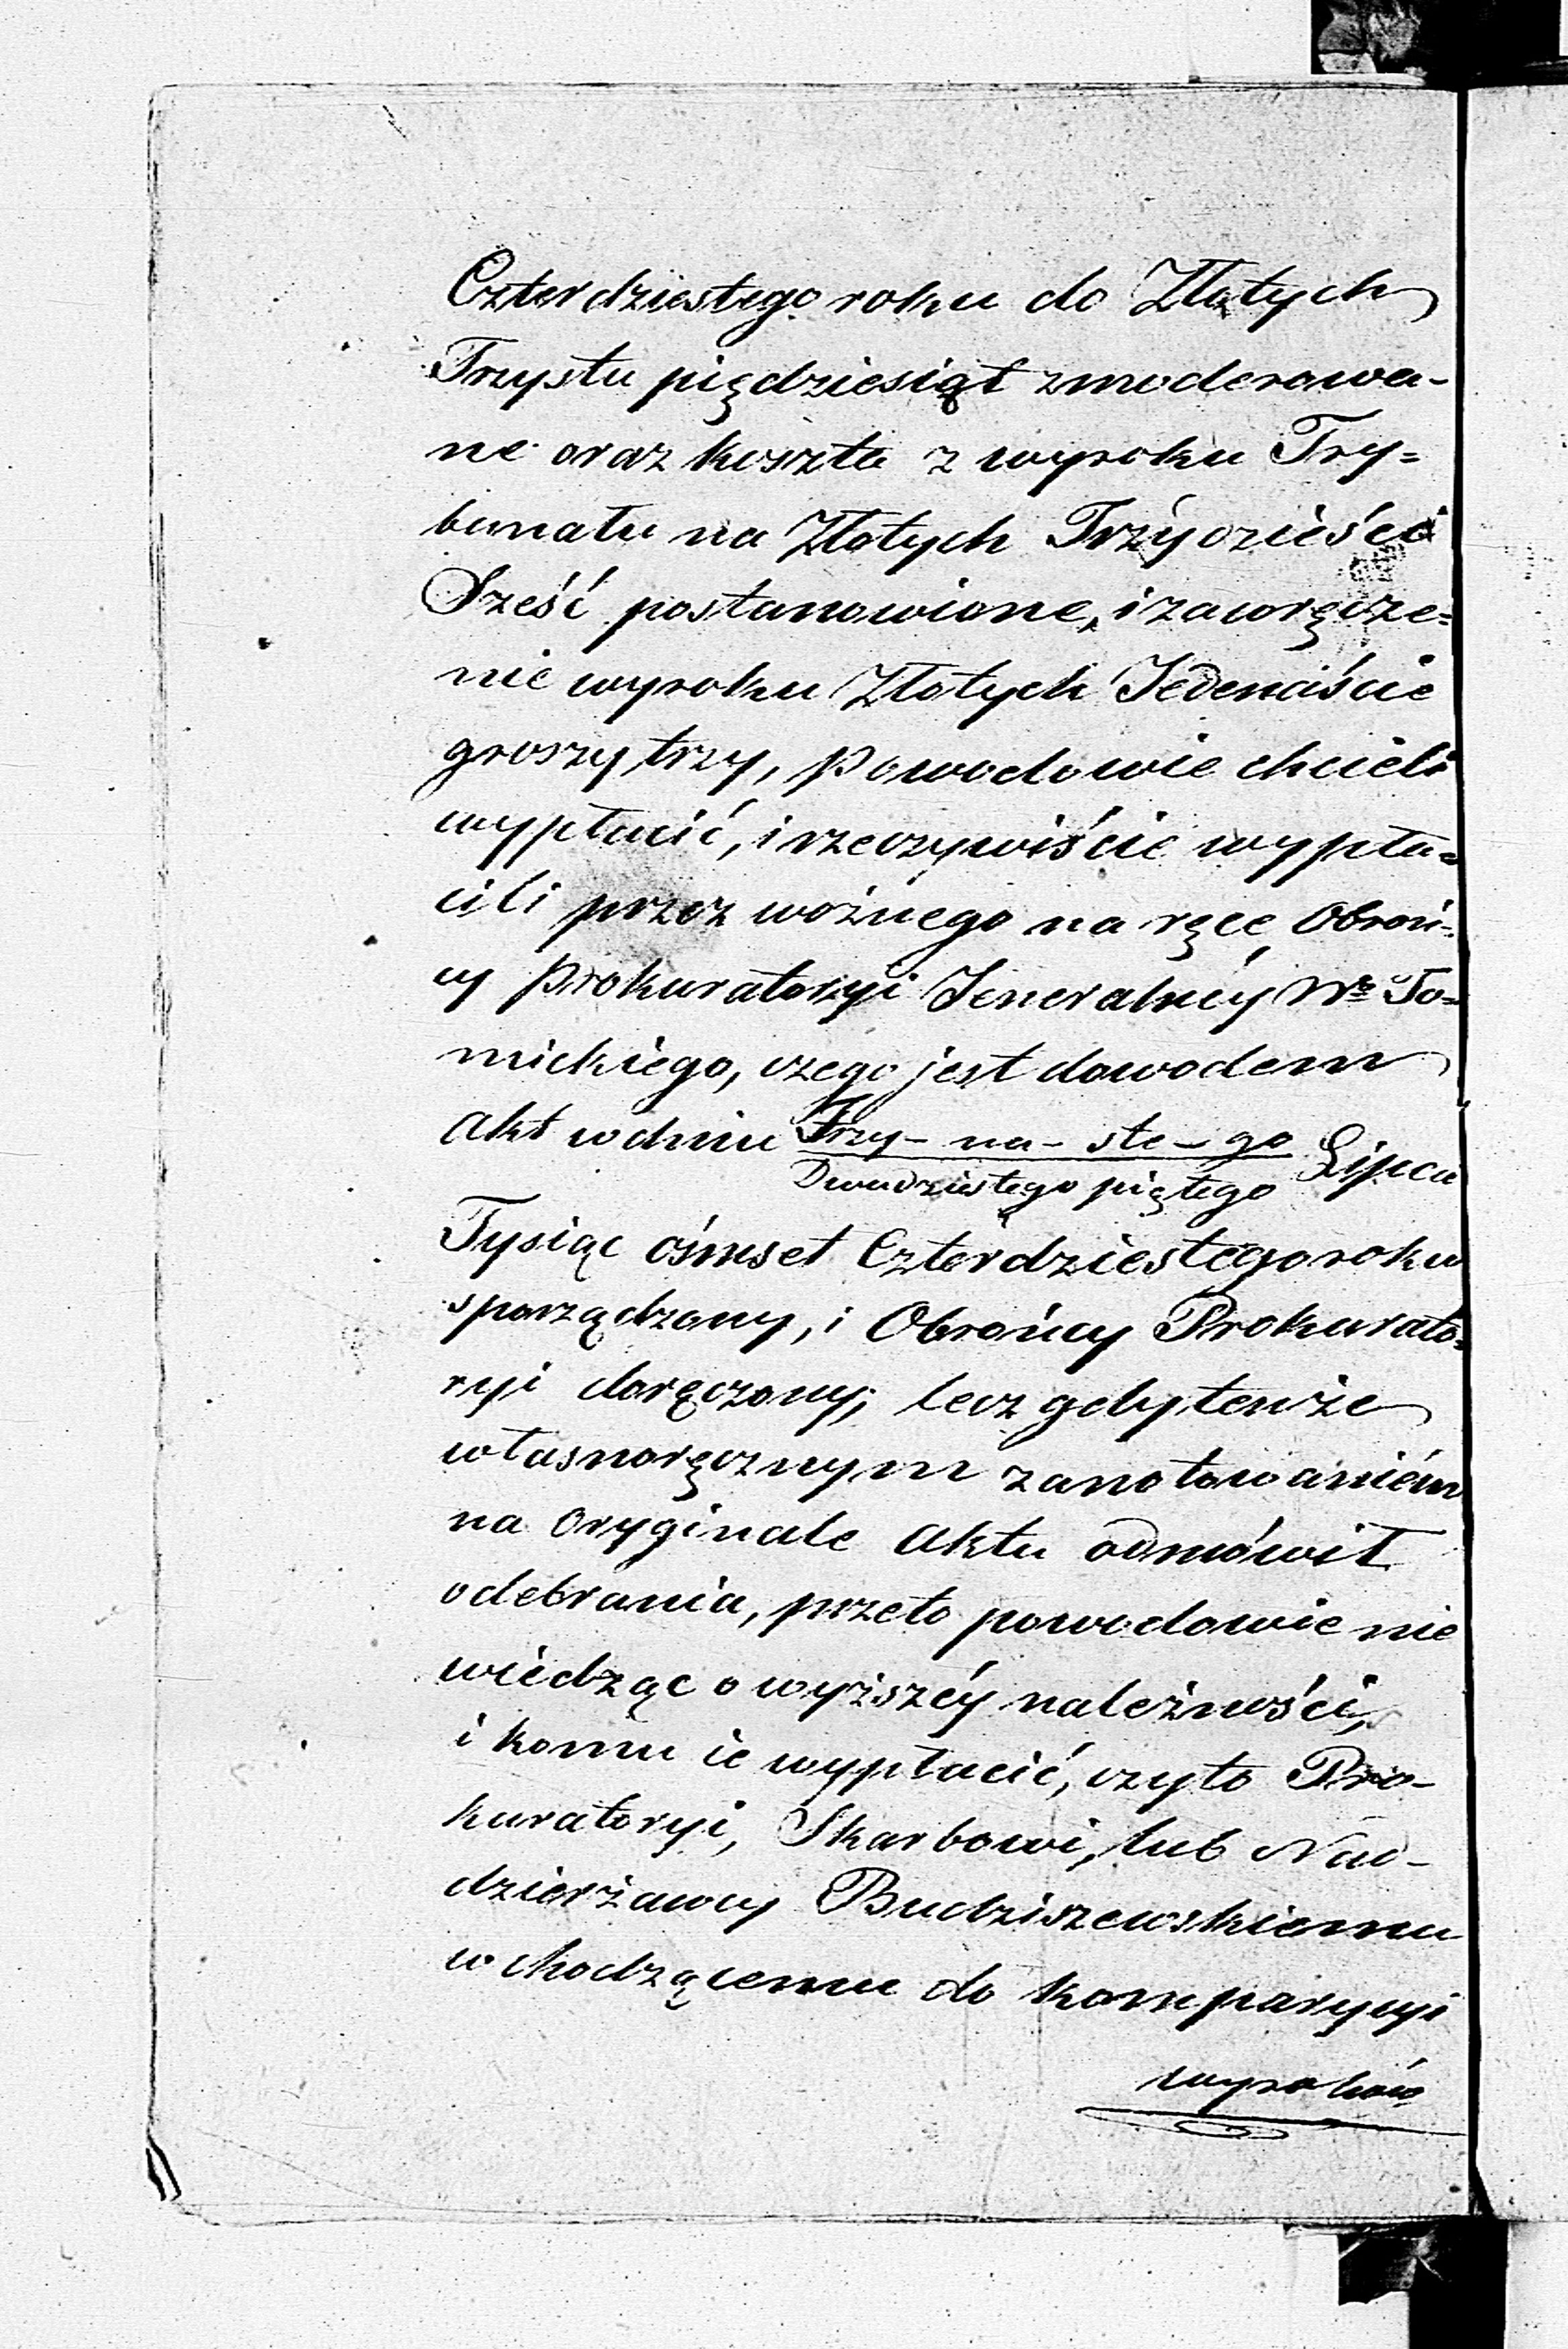 Czterdziestego roku do Złotych
Trzystu pięдziesiąt zmoderowa-
ne oraz koszta z wyroku Try=
bunału na Złotych Trzydzieści
Sześć postanowione, i zawręcze=
nie wyroku Złotych Jedenaście
groszy trzy, Powodowie chcieli
wypłacić, i rzeczywiście wypła=
cili przez woźnego na ręce Obroń=
cy Prokuratoryi Jeneralnéy Wo To=
mickiego, czego jest dowodem
Akt w dniu Trzy- na- ste- go Lipca
Dwudziestego piątego
Tysiąc ośmset Czterdziestego roku
sporządzony, i Obrońcy Prokurato=
ryi doręczony; lecz gdy tenże
własnoręcznym zanotowaniém
na Oryginale Aktu odmówił
odebrania, przeto powodowie nie
wiedząc o wyższéy należności,
i komu ie wypłacić, czyto Pro-
kuratoryi, Skarbowi, lub Nad-
dzierżawcy Budziszewskiemu
wchodzącemu do komparycyi
wyroków